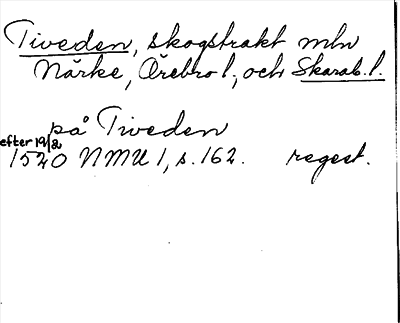 Tiveden, skogstrakt mln
Närke, Örebro l., och Skarab. l.
på Tiveden
efter 19/2
1520 NMU 1, s. 162. regest.